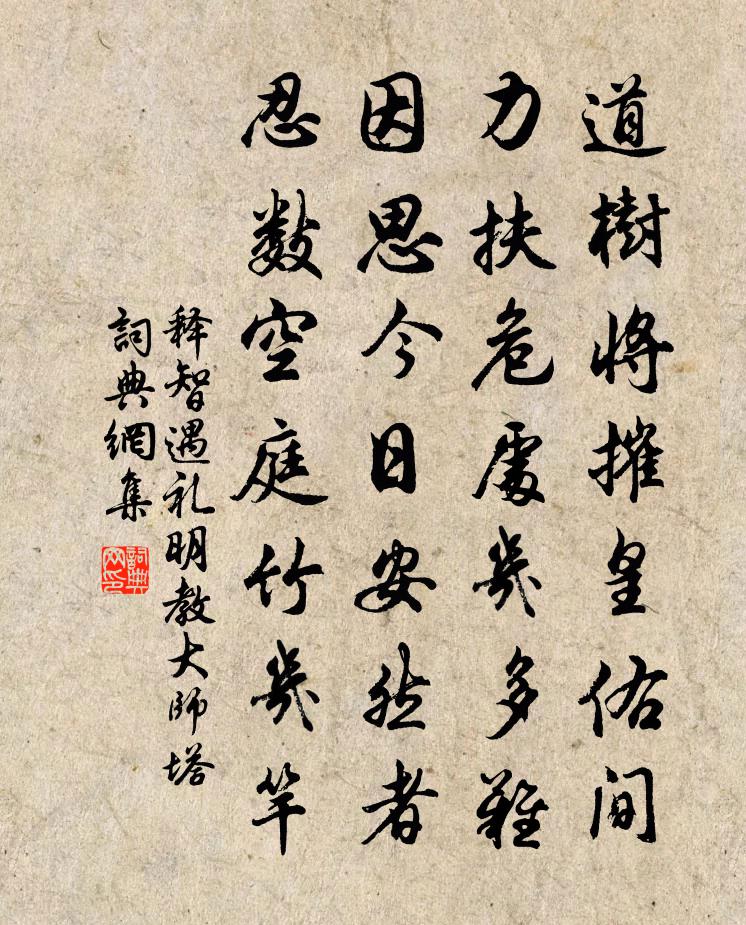 道樹將摧皇佑间
力扶危處幾多難
因思今日安然者
忍數空庭竹幾竿
释智遇礼明教大師塔
詞典網集
詞典网印